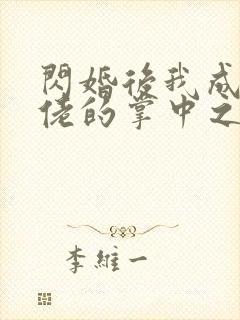 閃婚後我成
佬的掌中之
李維一